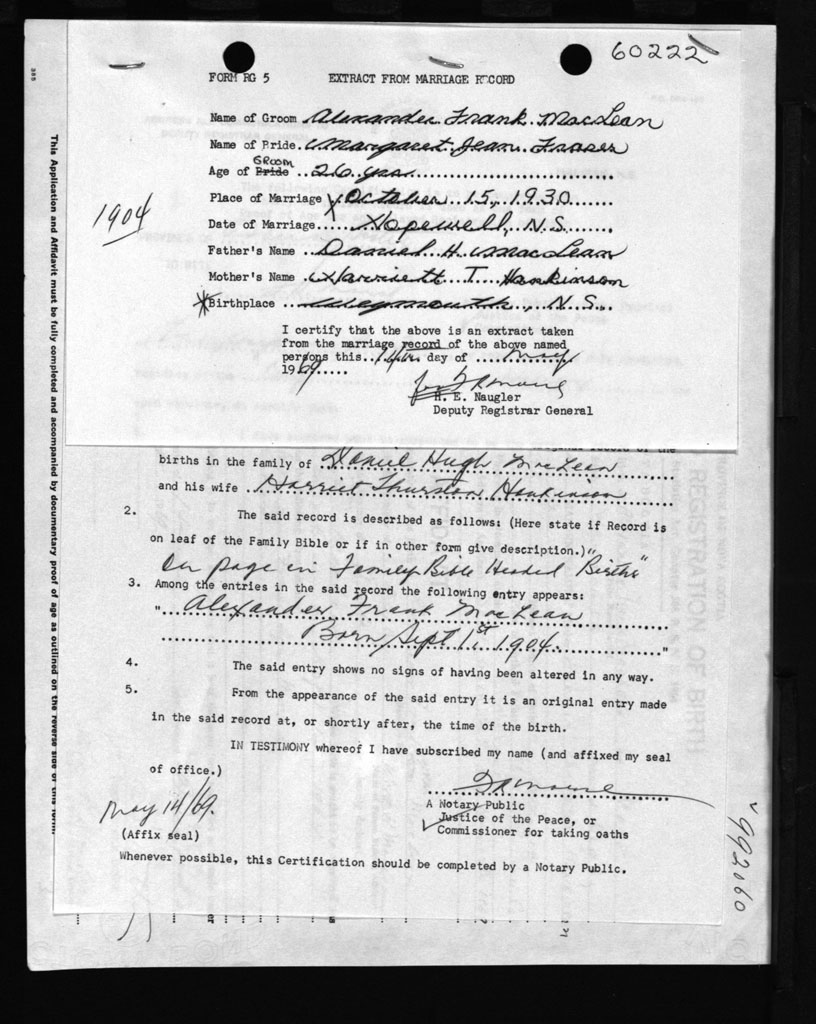 60222
FORM RG 5 EXTRACT FROM MARRIAGE RECORD
Name of Groom Alexander Frank MacLean
Name of Bride Margaret Jean Fraser
Groom
Age of Bride 26 years
Place of Marriage October 15, 1930
1904
Date of Marriage Hopewell, N.S.
Father's Name Daniel H. MacLean
Mother's Name Harriett T. Hankinson
*Birthplace Weymouth, N.S.
I certify that the above is an extract taken
from the marriage record of the above named
persons this 14th day of May
1969
H. E. Naugler
Deputy Registrar General
births in the family of Daniel Hugh MacLean
and his wife Harriet Thurston Hankinson
2. The said record is described as follows: (Here state if Record is
on leaf of the Family Bible or if in other form give description.)"
On page in Family Bible Headed "Births"
3. Among the entries in the said record the following entry appears:
" Alexander Frank MacLean
Born Sept 1st 1904 "
4. The said entry shows no signs of having been altered in any way.
5. From the appearance of the said entry it is an original entry made
in the said record at, or shortly after, the time of the birth.
IN TESTIMONY whereof I have subscribed my name (and affixed my seal
of office.)
A Notary Public
May 14/69.
Justice of the Peace, or
(Affix seal) Commissioner for taking oaths
Whenever possible, this Certification should be completed by a Notary Public.
This Application and Affidavit must be fully completed and accompanied by documentary proof of age as outlined on the reverse side of this form
REGISTRATION OF BIRTH
992060